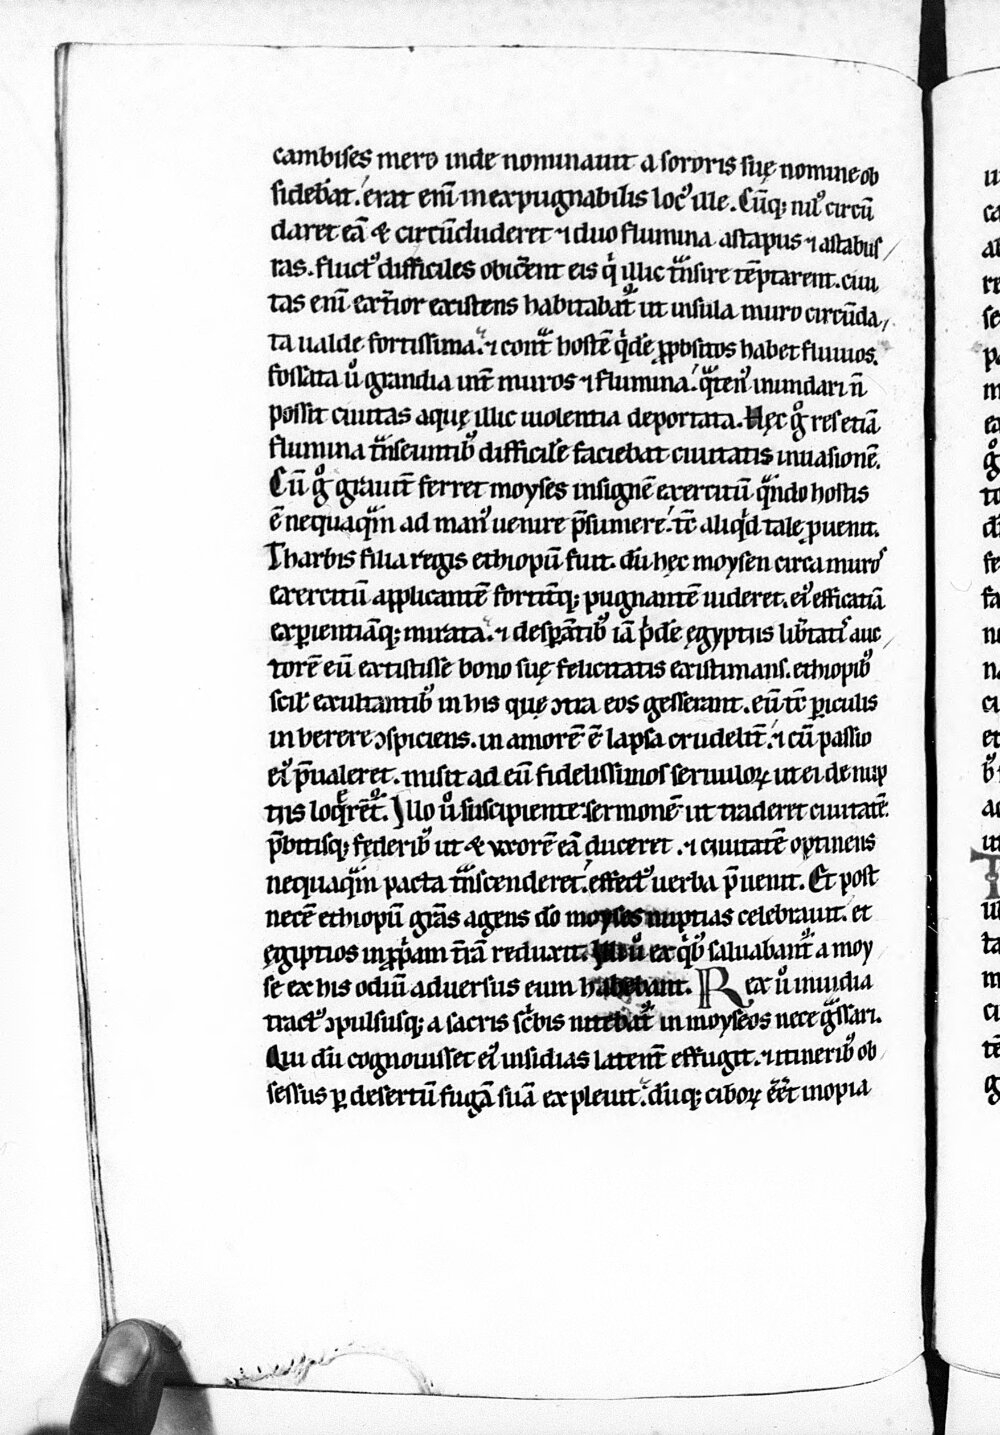 cambises mero inde nominauit a sororis suę nomine ob
sideb̄at. erat eni̅ inexpugnabilis locꝰ ille. Cu̅q; nilꝰ circu̅
daret ea̅ & circu̅cluderet ⁊ duo flumina astapus ⁊ astabus/
ras. fluctꝰ difficiles obice̅nt eis qͥ illic tͣnsire te̅ptarent. ciui
tas eni̅ ext̅ior existens habitabatᷣ ut insula muro circu̅da/
ta ualde fortissima. ⁊ contͣ hoste̅ qͥde̅ ꝓpositos habet fluuios.
fossata uͦ grandia int̅ muros ⁊ flumina. qͣtenꝰ inundari n̅
possit ciuitas aquę illic uiolentia deportata. Hęc gͦ res etia̅
flumina tͣnseuntibꝰ difficile faciebat ciuitatis inuasione̅.
Cu̅ gͦ grauit̅ ferret moyses insigne̅ exercitu̅ qͣndo hostis
e̅ nequaqͣm ad manꝰ uenire p̅sumere. tc̅ aliqͥd tale ꝓuenit.
Tharbis filia regis ethiopu̅ fuit. du̅ hęc moysen circa muroˢ
exercitu̅ applicante̅ fortit̅q; pugnante̅ uideret. eiꝰ efficatia̅
exꝑientia̅q; mirata. ⁊ despa̅tibꝰ ia̅ pͥde̅ ęgyptiis lib̅tatiˢ auc/
tore̅ eu̅ extitisse̅ bono suę felicitatis existimans. ethiopibꝰ
scil̅ exultantibꝰ in his quę ↄtra eos gesserant. eu̅ tc̅ ꝑiculis
in herere ↄspiciens. in amore̅ e̅ lapsa crudelit̅. ⁊ cu̅ passio
eiꝰ p̅ualeret. misit ad eu̅ fidelissimos seruuloꝝ ut ei de nup
tiis loqͤre̅tᷣ. Illo uͦ suscipiente sermone̅ ut traderet ciuitate̅.
p̅bitisq; fęderibꝰ ut & uxore̅ ea̅ duceret. ⁊ ciuitate̅ optinens
nequaqͣm pacta tͣnscenderet. effectꝰ uerba p̅uenit. Et post
nece̅ ethiopu̅ gra̅s agens do̅ moyses nuptias celebrauit. et
ęgiptios in ꝓpͥam t̅ra̅ reduxit. uͦ ex qͥbꝰ saluabantᷣ a moy
se ex his odiu̅ aduersus eum habebant. Rex uͦ inuidia
tractꝰ ↄpulsusq; a sacris scͥbis nitebatᷣ in moyseos nece gͣssari.
Qui du̅ cognouisset eiꝰ insidias latent̅ effugit. ⁊ itineribꝰ ob/
sessus ꝑ desertu̅ fuga̅ sua̅ expleuit. du̅q; ciboꝝ ee̅t inopia